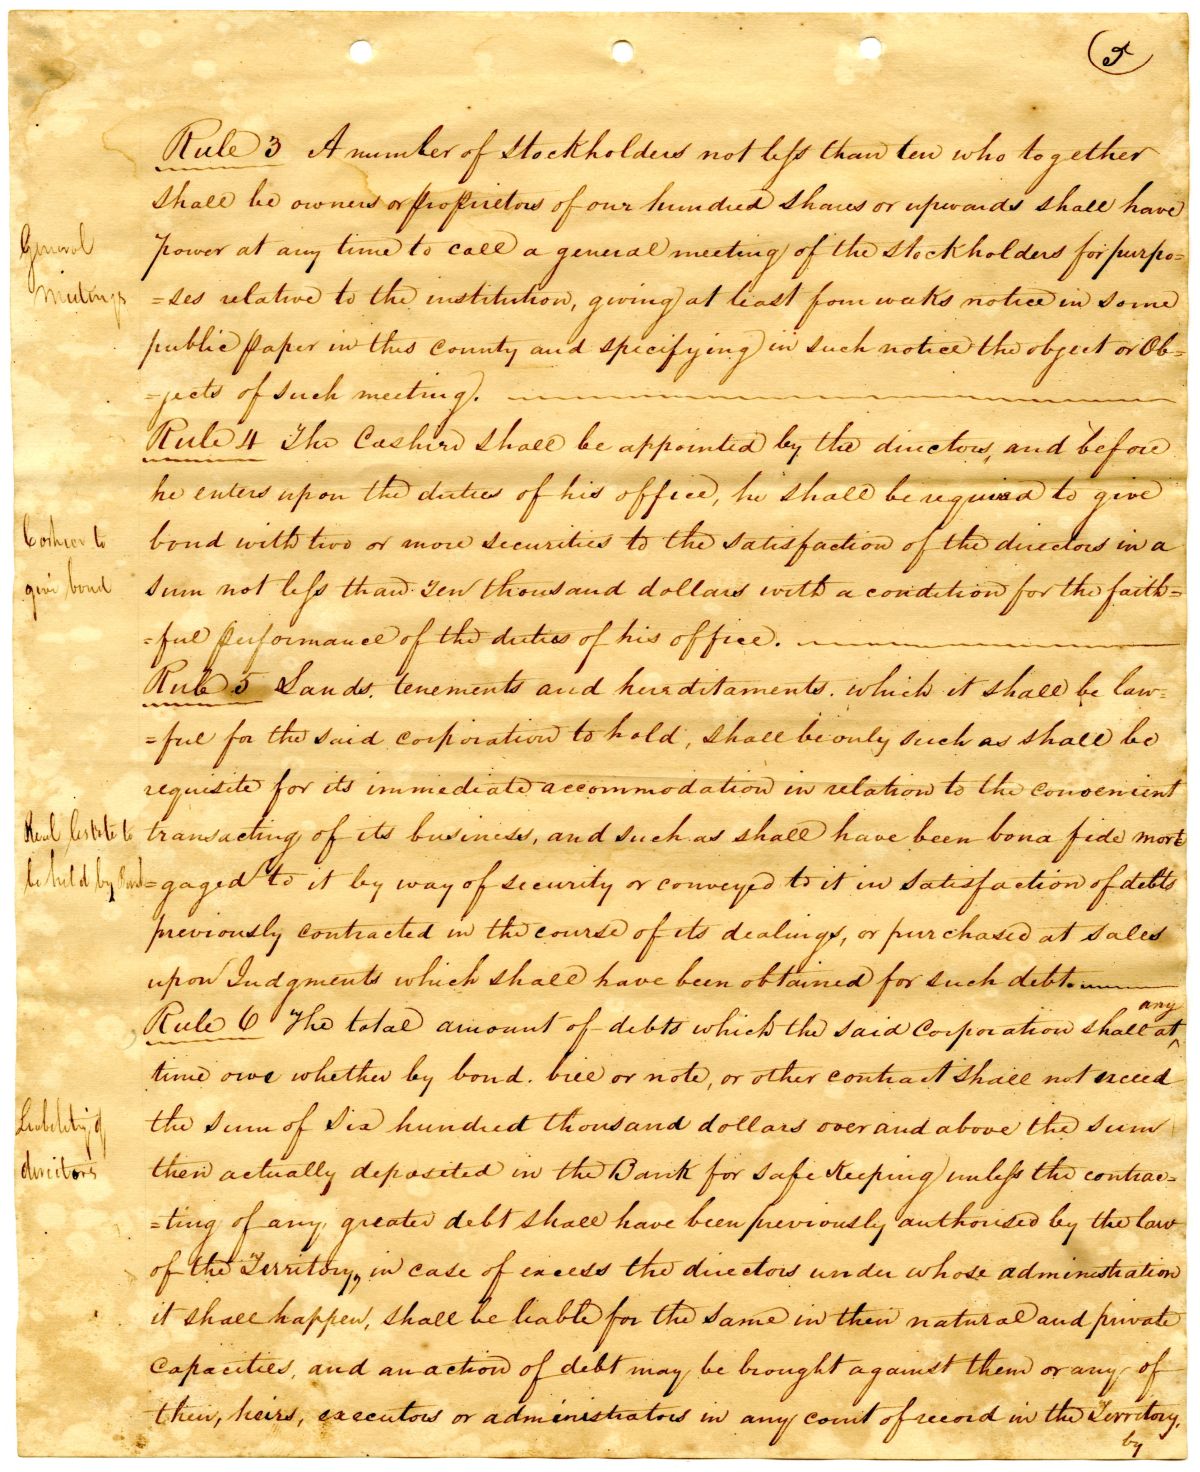 5
Rule 3 A number of Stockholders not less than ten who together
shall be owners or proprietors of one hundred shares or upwards shall have
General
power at any time to call a general meeting of the stockholders for purpo=
meetings
=ses relative to the institution, giving at least four weeks notice in some
public paper in this county and specifying in such notice the object or Ob=
=jects of such meeting.
Rule 4 The Cashier shall be appointed by the directors, and before
he enters upon the duties of his office, he shall be required to give
Cashier to
bond with two or more securities to the satisfaction of the directors in a
give bond
sum not less than Ten thousand dollars with a condition for the faith=
=ful performance of the duties of his office.
Rule 5 Lands, tenements and hereditaments. which it shall be law=
=ful for the said corporation to hold, shall be only such as shall be
requisite for its immediate accommodation in relation to the convenient
Real Estate to
transacting of its business, and such as shall have been bona fide mort
be held by Bank
=gaged to it by way of security or conveyed to it in satisfaction of debts
previously contracted in the course of its dealings, or purchased at sales
upon Judgments which shall have been obtained for such debt.
any
Rule 6 The total amount of debts which the said Corporation shall at ^
time owe whether by bond. bill or note, or other contract shall not exceed
Liability of
the sum of Six hundred thousand dollars over and above the sum
directors
then actually deposited in the Bank for safe Keeping unless the contrac=
=ting of any greater debt shall have been previously authorised by the law
of the Territory, in case of excess the directors under whose administration
it shall happen, shall be liable for the same in their natural and private
Capacities, and an action of debt may be brought against them or any of
their, heirs, executors or administrators in any court of record in the Territory,
by